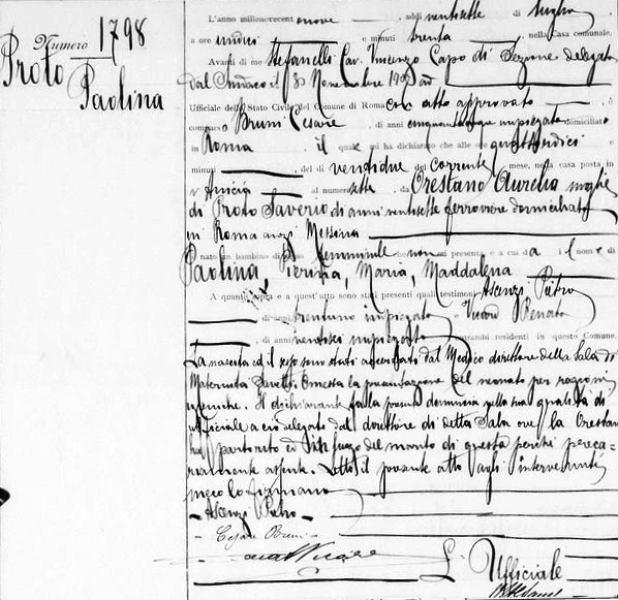 Numero 1798
Proto
Paolina
L'anno millenovecent nove, addì ventisette di luglio
a ore undici e minuti trenta, nella Casa comunale.
Avanti di me Stefanelli Cav. Vincenzo Capo di Sezione delegato
dal Sindaco il Novembre
Ufficiale dello Stato Civile del Comune di Roma con atto approvato è
comparso Bruni Cesare, di anni cinquantacinque impiegato domiciliato
in Roma il quale mi ha dichiarato che alle ore quattordici
e minuti del dì ventidue del corrente mese, nella casa posta in
v Anicia al numero sette, da Crestano Aurelia moglie
di Proto Saverio di anni ventisette ferroviere domiciliato
in Roma anzi Messina
è nato un bambino di sesso femminile che non mi presenta e a cui dà il nome di
Paolina, Pierina, Maria, Maddalena
A quanto sopra e a quest'atto sono stati presenti quali testimoni Ascenzi Pietro
di anni trentuno impiegato e Renato
di anni ventisei impiegato entrambi residenti in questo Comune.
La nascita ed il sesso sono stati accertati dal Medico direttore della Sala di
Maternità Omessa la presentazione del neonato per ragioni
igieniche. Il dichiarante fa la presente denuncia nella sua qualità di
ufficiale a ciò delegato dal direttore di detta Sala ove la Crestano
ha partorito ed in luogo del marito di questa perché
assente. Letto il presente atto agli intervenuti
meco lo firmano
Ascenzi Pietro
Cesare Bruni
L'Ufficiale